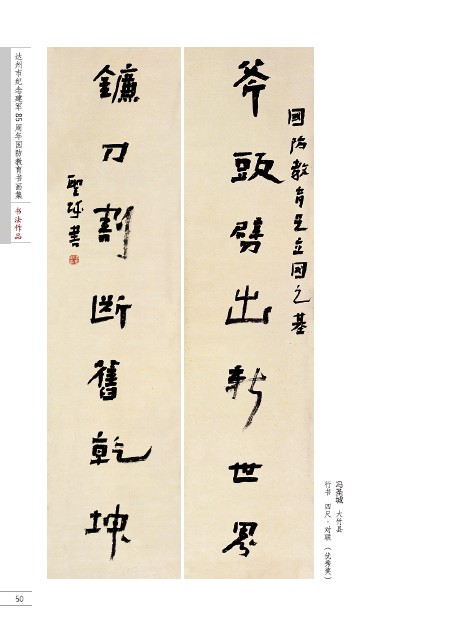 國防教育是立國之基
斧頭劈出新世界
鐮刀割斷舊乾坤
聖城書
冯圣城 大竹县
行书 四尺·对联（优秀奖）
达州市纪念建军85周年国防教育书画集
书法作品
50